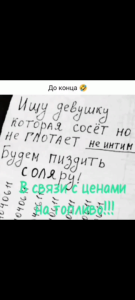 До конца 🤣
Ищу девушку
которая сосёт но
не глотает не интим
Будем пиздить
СОЛЯРУ!
В связи с ценами
на топливо!!!